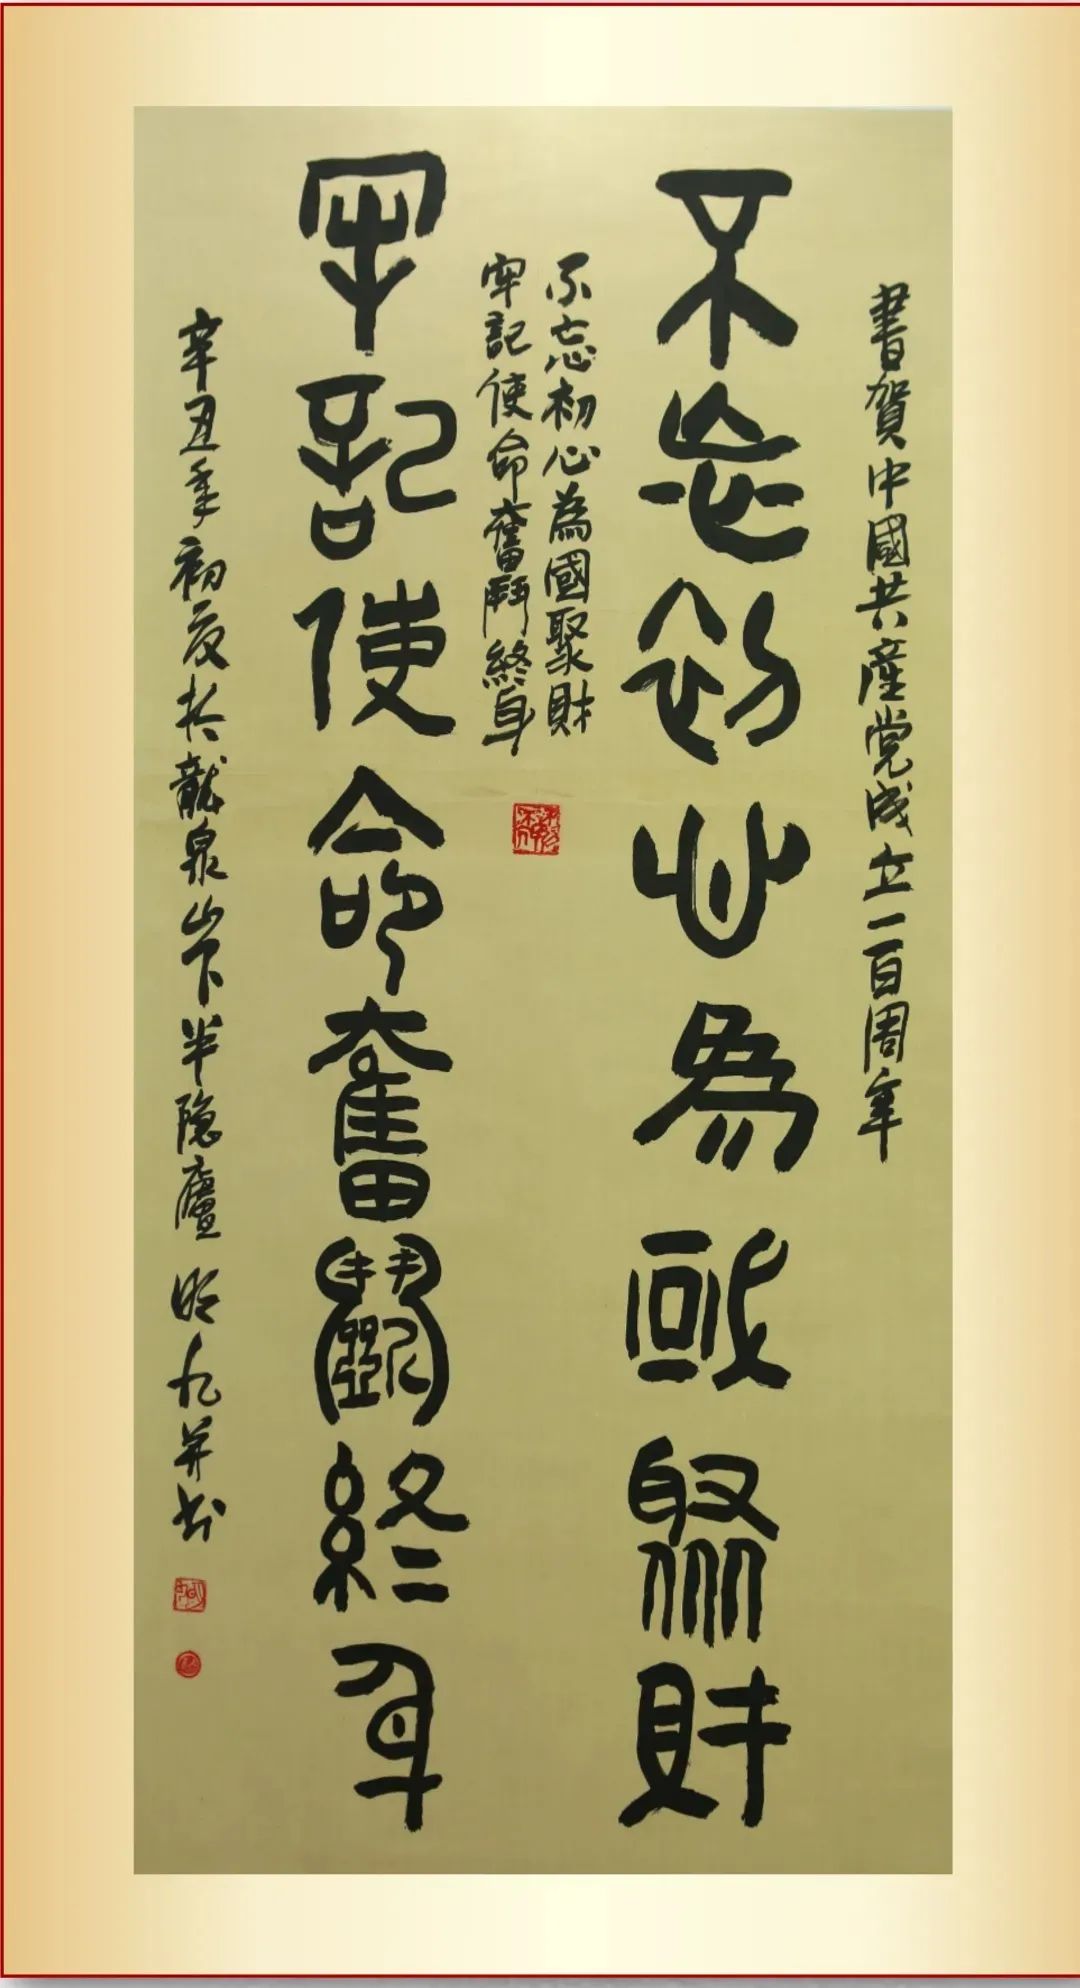 書賀中國共產党成立一百周年
不忘初心為國聚財
不忘初心為國聚財
牢記使命奮鬥終身
牢記使命奮鬭終身
辛丑年初夏於龍泉山下半隐廬 明九并书